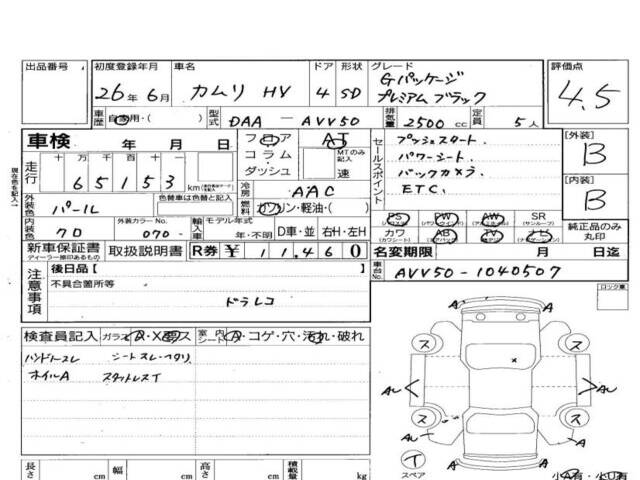 出品番号 初度登録年月 車名 ドア 形状 グレード 評価点
26年 6月 カムリ HV 4 SD Gパッケージ プレミアムブラック 4.5
車歴 自家用・( ) 型式 DAA-AVV50 排気量 2500cc 定員 5人
車検 年 月 日 フロア AT
コラム・ダッシュ MTのみ記入 速
走行 十 万 千 百 十
65153 km
冷房 AAC
外装色 パール 色替車は色替と記入
燃料 ガソリン・軽油・( )
内装色 クロ 外装カラーNo. 070- 輸入車 モデル年式 年・不明 D車・並 右H・左H
セールスポイント
プッシュスタート.
パワーシート.
バックカメラ.
ETC.
[外装]
B
[内装]
B
PS PW AW SR
(サンルーフ)
カワ AB TV ナビ
純正品のみ丸印
新車保証書 取扱説明書 R券 ¥11,460 名変期限 月 日迄
ディーラー捺印あるもの
車台No. AVV50-1040507
注意事項
後日品[ ]
不具合箇所等
ドラレコ
ロック車
検査員記入 ガラス A・X・ 室内シート A・コゲ・穴・汚れ・破れ
ハンドルスレ シートスレ・ヘタリ
ホイルA スタットレスT
A A
ス ス
AU AU
ス ス
AU A A
T スペア
A A
長さ cm 幅 cm 高さ cm 積載量 kg
小A有・小U有
現在色を記入